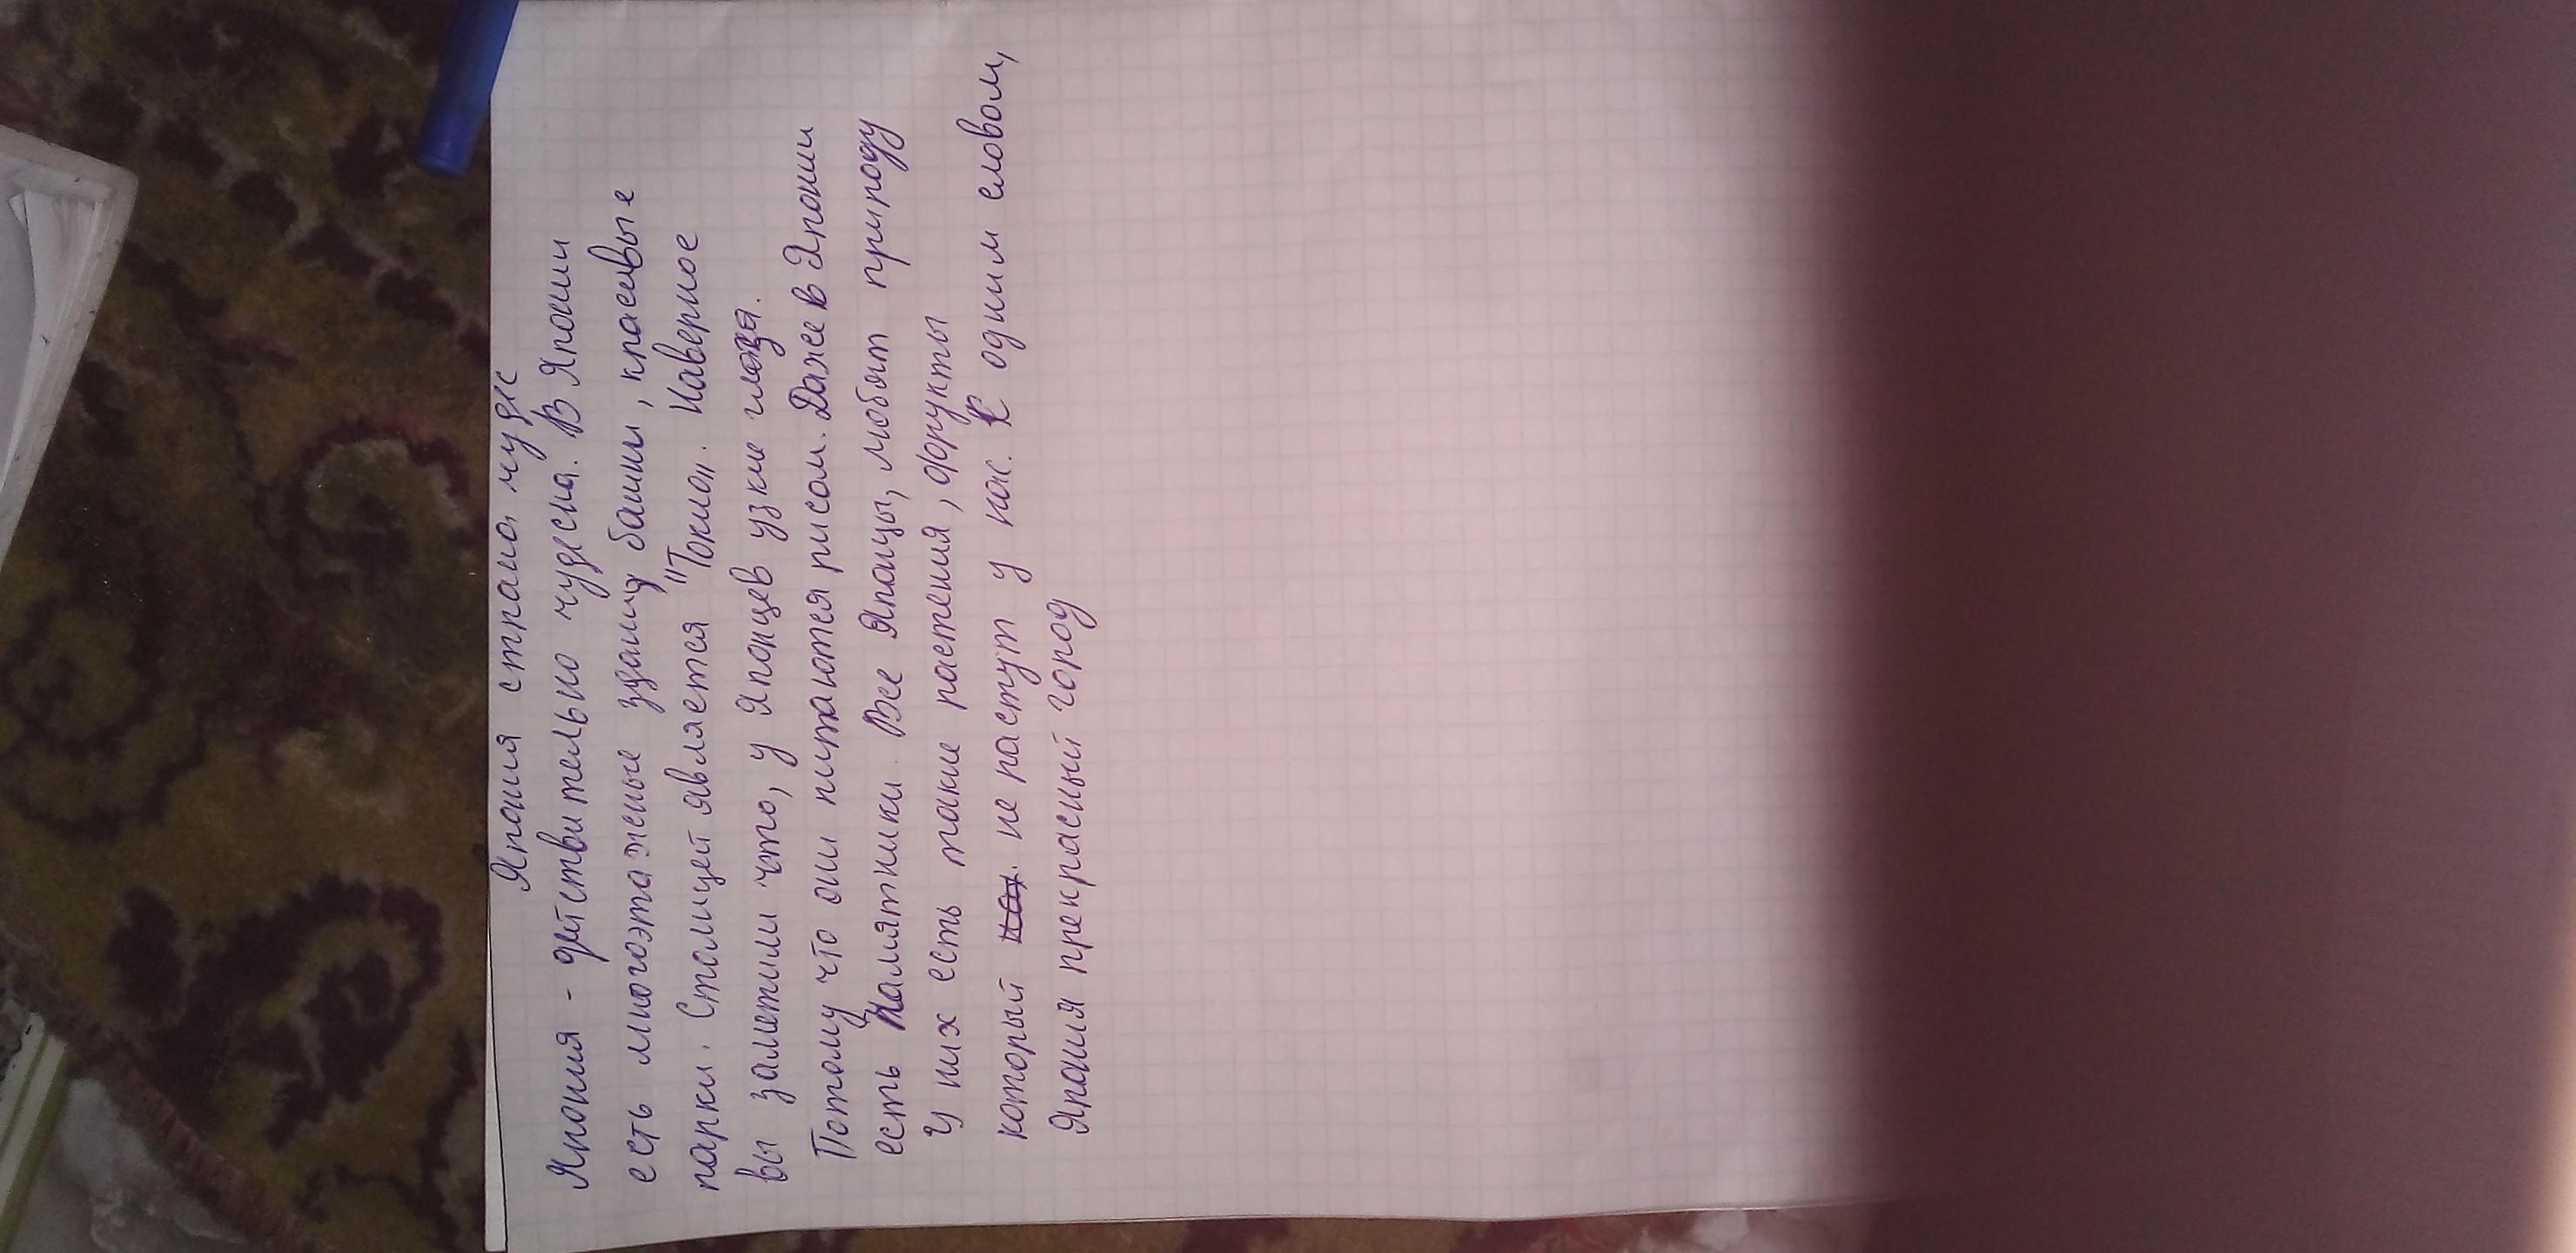 Япония страна чудес
Япония - действительно чудесна. В Японии
есть многоэтажные здания башни, красивые
парки. Столицей является "Токио". Наверное
вы заметили что, у Японцев узкие глаза.
Потому что они питаются рисом. Даже в Японии
есть памятники. Все Японцы, любят природу
У них есть такие растения, фрукты
который не растут у нас. К одним словом,
Япония прекрасный город